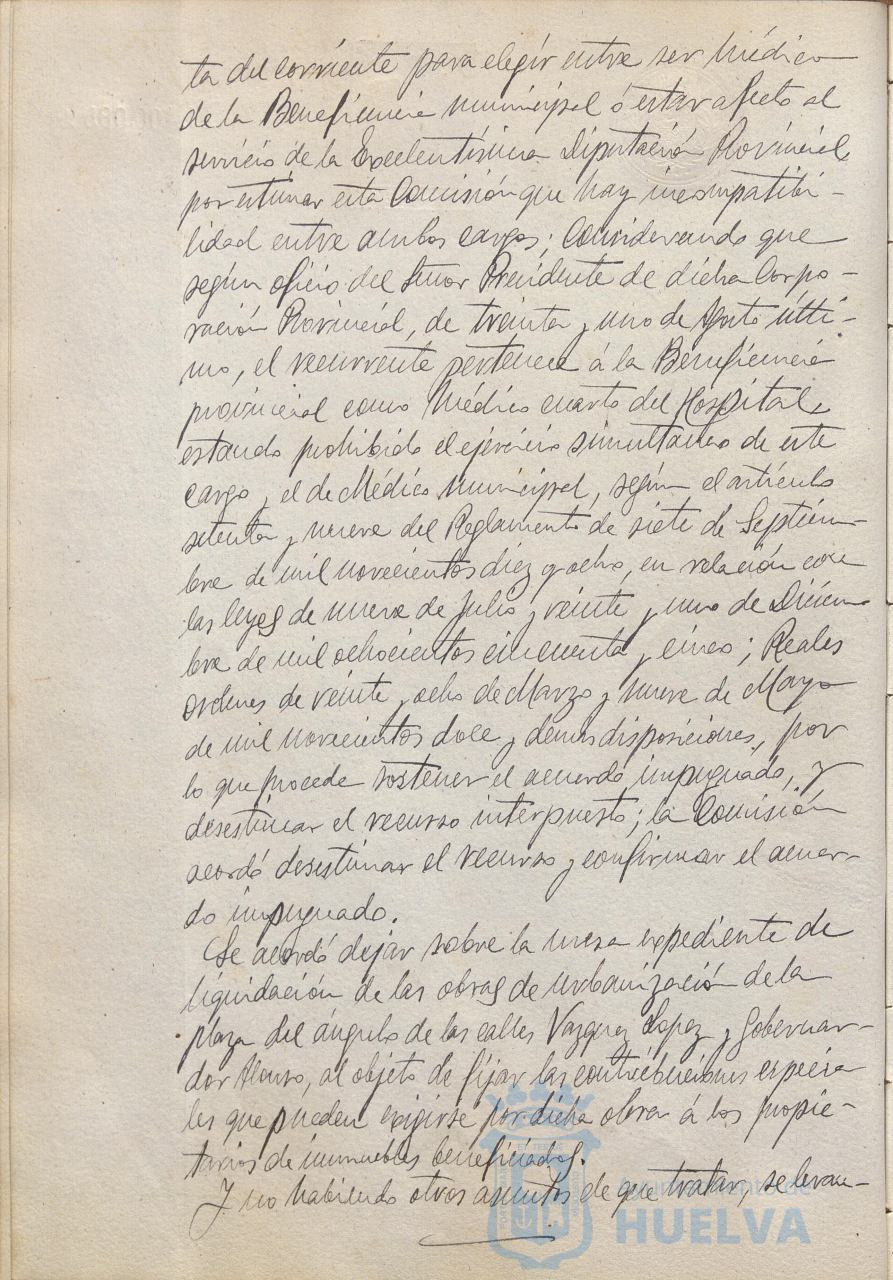 ta del corriente para elegir entre ser Médico
de la Beneficencia municipal ó estar afecto al
servicio de la Excelentísima Diputación Provincial,
por estimar esta Comisión que hay incompatibi-
lidad entre ambos cargos; Considerando que
según oficio del Señor Presidente de dicha Corpo-
ración Provincial, de treinta y uno de Agosto últi-
mo, el recurrente pertenece á la Beneficencia
provincial como Médico cuarto del Hospital,
estando prohibido el ejercicio simultáneo de este
cargo y el de Médico municipal, según el artículo
setenta y nueve del Reglamento de siete de Septiem-
bre de mil novecientos diez y ocho, en relación con
las leyes de nueve de Julio y veinte y uno de Diciem-
bre de mil ochocientos cincuenta y cinco; Reales
ordenes de veinte y ocho de Marzo y nueve de Mayo
de mil novecientos doce y demás disposiciones, por
lo que procede sostener el acuerdo impugnado, y
desestimar el recurso interpuesto; la Comisión
acordó desestimar el recurso y confirmar el acuer-
do impugnado.
Se acordó dejar sobre la mesa expediente de
liquidación de las obras de urbanización de la
plaza del ángulo de las calles Vazquez Lopez y Gobernar-
dor Alonso, al objeto de fijar las contribuciones especia
les que pueden exigirse por dicha obra á los propie-
tarios de inmuebles beneficiados.
Y no habiendo otros asuntos de que tratar, se levan-
Ayuntamiento de
HUELVA